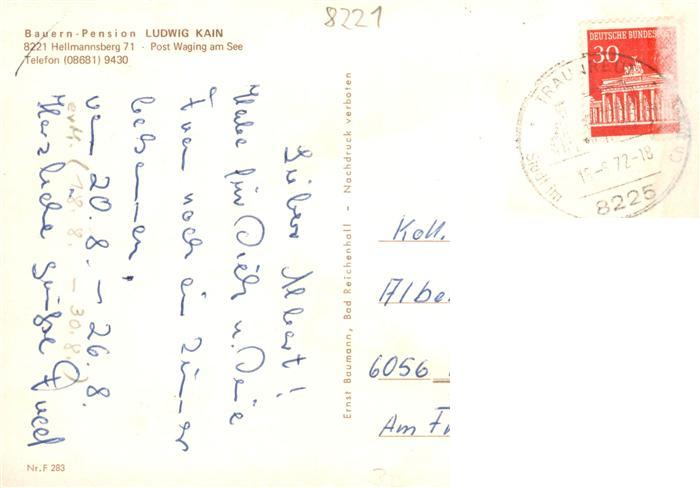 8221
Bauern-Pension LUDWIG KAIN
8221 Hellmannsberg 71 · Post Waging am See
Telefon (08681) 9430
Lieber Albert!
Habe für Dich u. Deine
Frau noch ein Zimmer
bekommen,
vom 20.8. – 26.8.
evtl. (18.8. – 30.8.)
Herzliche Grüße
Nr. F 283
Ernst Baumann, Bad Reichenhall – Nachdruck verboten
DEUTSCHE BUNDES
30
TRAUNREUT
72-18
8225
Koll.
Albe
6056
Am Fr